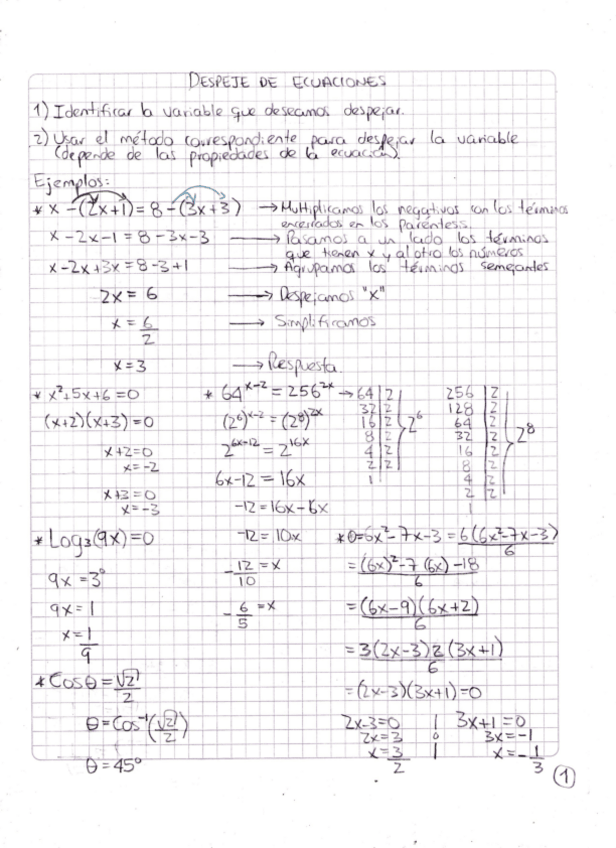 DESPEJE DE ECUACIONES
1) Identificar la variable que deseamos despejar.
2) Usar el método correspondiente para despejar la variable
(depende de las propiedades de la ecuación).
Ejemplos:
* x-(2x+1)=8-(3x+3) → Multiplicamos los negativos con los términos
encerrados en los paréntesis.
x-2x-1=8-3x-3 → Pasamos a un lado los términos
que tienen x y al otro los números
x-2x+3x=8-3+1 → Agrupamos los términos semejantes
2x=6 → Despejamos "x"
x=6/2 → Simplificamos
x=3 → Respuesta.
* x²+5x+6=0
(x+2)(x+3)=0
x+2=0
x=-2
x+3=0
x=-3
* 64^(x-2)=256^(2x) → 64|2 256|2
32|2 128|2
16|2 64|2
8|2 32|2
4|2 16|2
2|2 8|2
1 4|2
2|2
1
2⁶ 2⁸
(2⁶)^(x-2)=(2⁸)^(2x)
2^(6x-12)=2^(16x)
6x-12=16x
-12=16x-6x
-12=10x
-12/10=x
-6/5=x
* Log₃(9x)=0
9x=3⁰
9x=1
x=1/9
* Cosθ=√2/2
θ=Cos⁻¹(√2/2)
θ=45°
* 0=6x²-7x-3=6(6x²-7x-3)/6
=(6x)²-7(6x)-18/6
=(6x-9)(6x+2)/6
=3(2x-3)2(3x+1)/6
=(2x-3)(3x+1)=0
2x-3=0 | 3x+1=0
2x=3 o 3x=-1
x=3/2 | x=-1/3
1